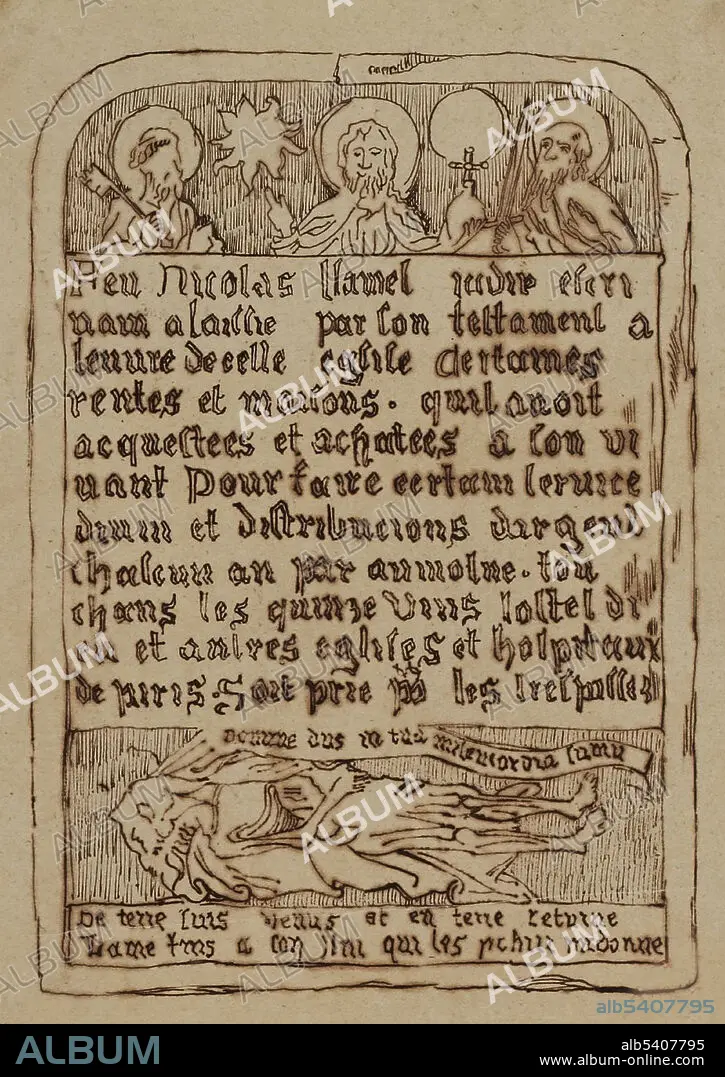 Feu Nicolas llamel jadie escri
uam a laissie par son testament a
leuure de celle eglise certames
rentes et maisons. quil auoit
acquestees et achatees a son vi
uant Pour faire certam seruice
diuin et distribucions dargent
chascun an par aumosne. tou
chans les quinze vins lostel di
eu et autres eglises et hospitaux
de paris. Soit prie les trespasses
domine dus in tua misericordia
De terre suis venus et en terre retorne
Lame a toy qui les
ALBUM
alb5407795
ALBUM
alb5407795
www.album-online.com